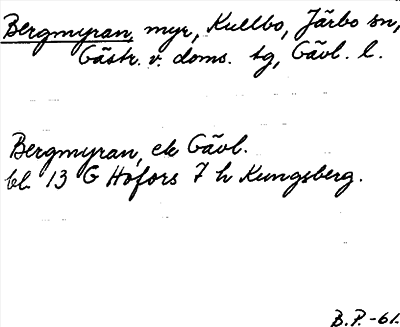 Bergmyran, myr, Kullbo, Järbo sn,
Gästr. v. doms. tg, Gävl. l.
Bergmyran, ek Gävl.
bl. 13 G Hofors 7 h Kungsberg.
B.P.-61.